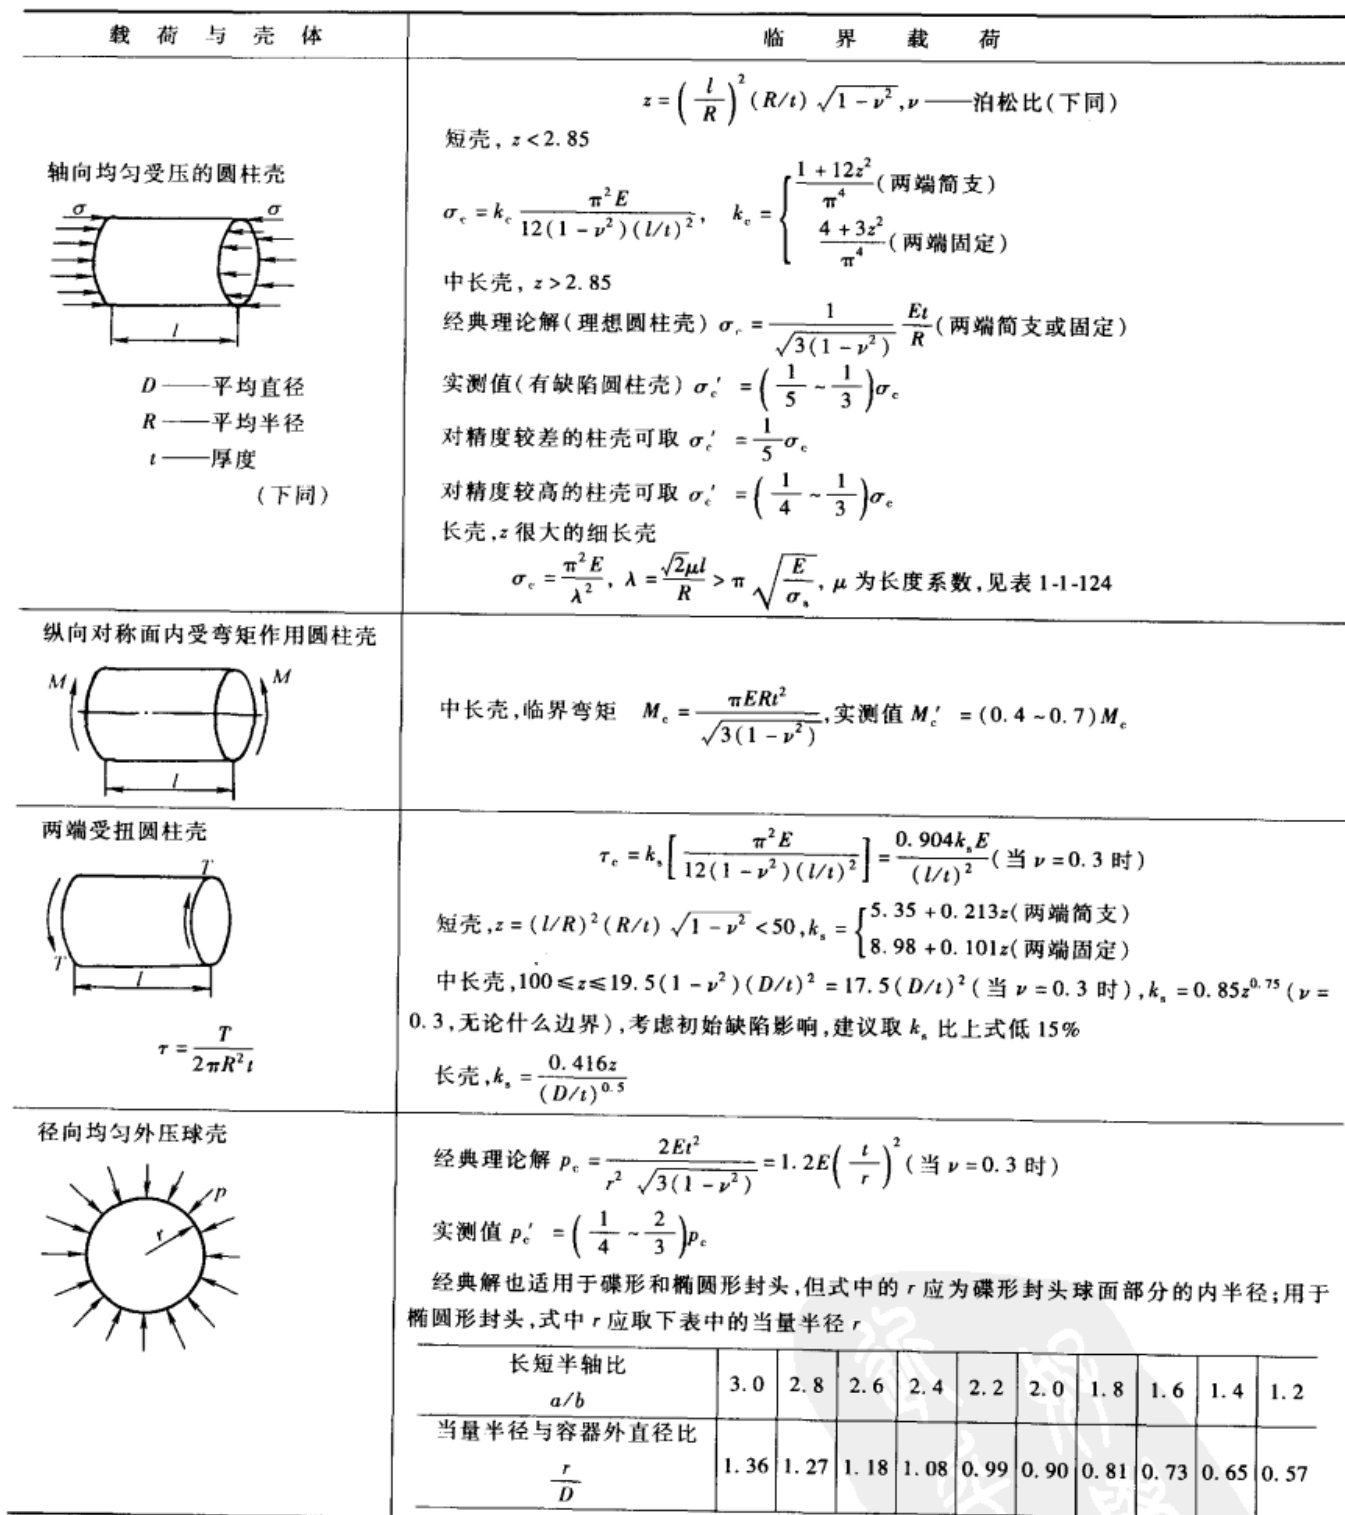 载荷与壳体
临界载荷
轴向均匀受压的圆柱壳
σ σ
l
D——平均直径
R——平均半径
t——厚度
(下同)
z=(l/R)²(R/t)√(1-ν²),ν——泊松比(下同)
短壳, z<2.85
σc=kc π²E/(12(1-ν²)(l/t)²), kc={(1+12z²)/π⁴(两端简支)
(4+3z²)/π⁴(两端固定)
中长壳, z>2.85
经典理论解(理想圆柱壳) σc=1/√(3(1-ν²)) Et/R(两端简支或固定)
实测值(有缺陷圆柱壳) σc′=(1/5~1/3)σc
对精度较差的柱壳可取 σc′=1/5σc
对精度较高的柱壳可取 σc′=(1/4~1/3)σc
长壳,z 很大的细长壳
σc=π²E/λ², λ=√2μl/R>π√(E/σs), μ 为长度系数,见表 1-1-124
纵向对称面内受弯矩作用圆柱壳
M M
l
中长壳,临界弯矩 Mc=πERt²/√(3(1-ν²)),实测值 Mc′=(0.4~0.7)Mc
两端受扭圆柱壳
T
T
l
τ=T/(2πR²t)
τc=ks[π²E/(12(1-ν²)(l/t)²)]=0.904ksE/(l/t)²(当 ν=0.3 时)
短壳,z=(l/R)²(R/t)√(1-ν²)<50,ks={5.35+0.213z(两端简支)
8.98+0.101z(两端固定)
中长壳,100≤z≤19.5(1-ν²)(D/t)²=17.5(D/t)²(当 ν=0.3 时),ks=0.85z^0.75(ν=
0.3,无论什么边界),考虑初始缺陷影响,建议取 ks 比上式低 15%
长壳,ks=0.416z/(D/t)^0.5
径向均匀外压球壳
p
r
经典理论解 pc=2Et²/(r²√(3(1-ν²)))=1.2E(t/r)²(当 ν=0.3 时)
实测值 pc′=(1/4~2/3)pc
经典解也适用于碟形和椭圆形封头,但式中的 r 应为碟形封头球面部分的内半径;用于
椭圆形封头,式中 r 应取下表中的当量半径 r
长短半轴比 a/b 3.0 2.8 2.6 2.4 2.2 2.0 1.8 1.6 1.4 1.2
当量半径与容器外直径比 r/D 1.36 1.27 1.18 1.08 0.99 0.90 0.81 0.73 0.65 0.57